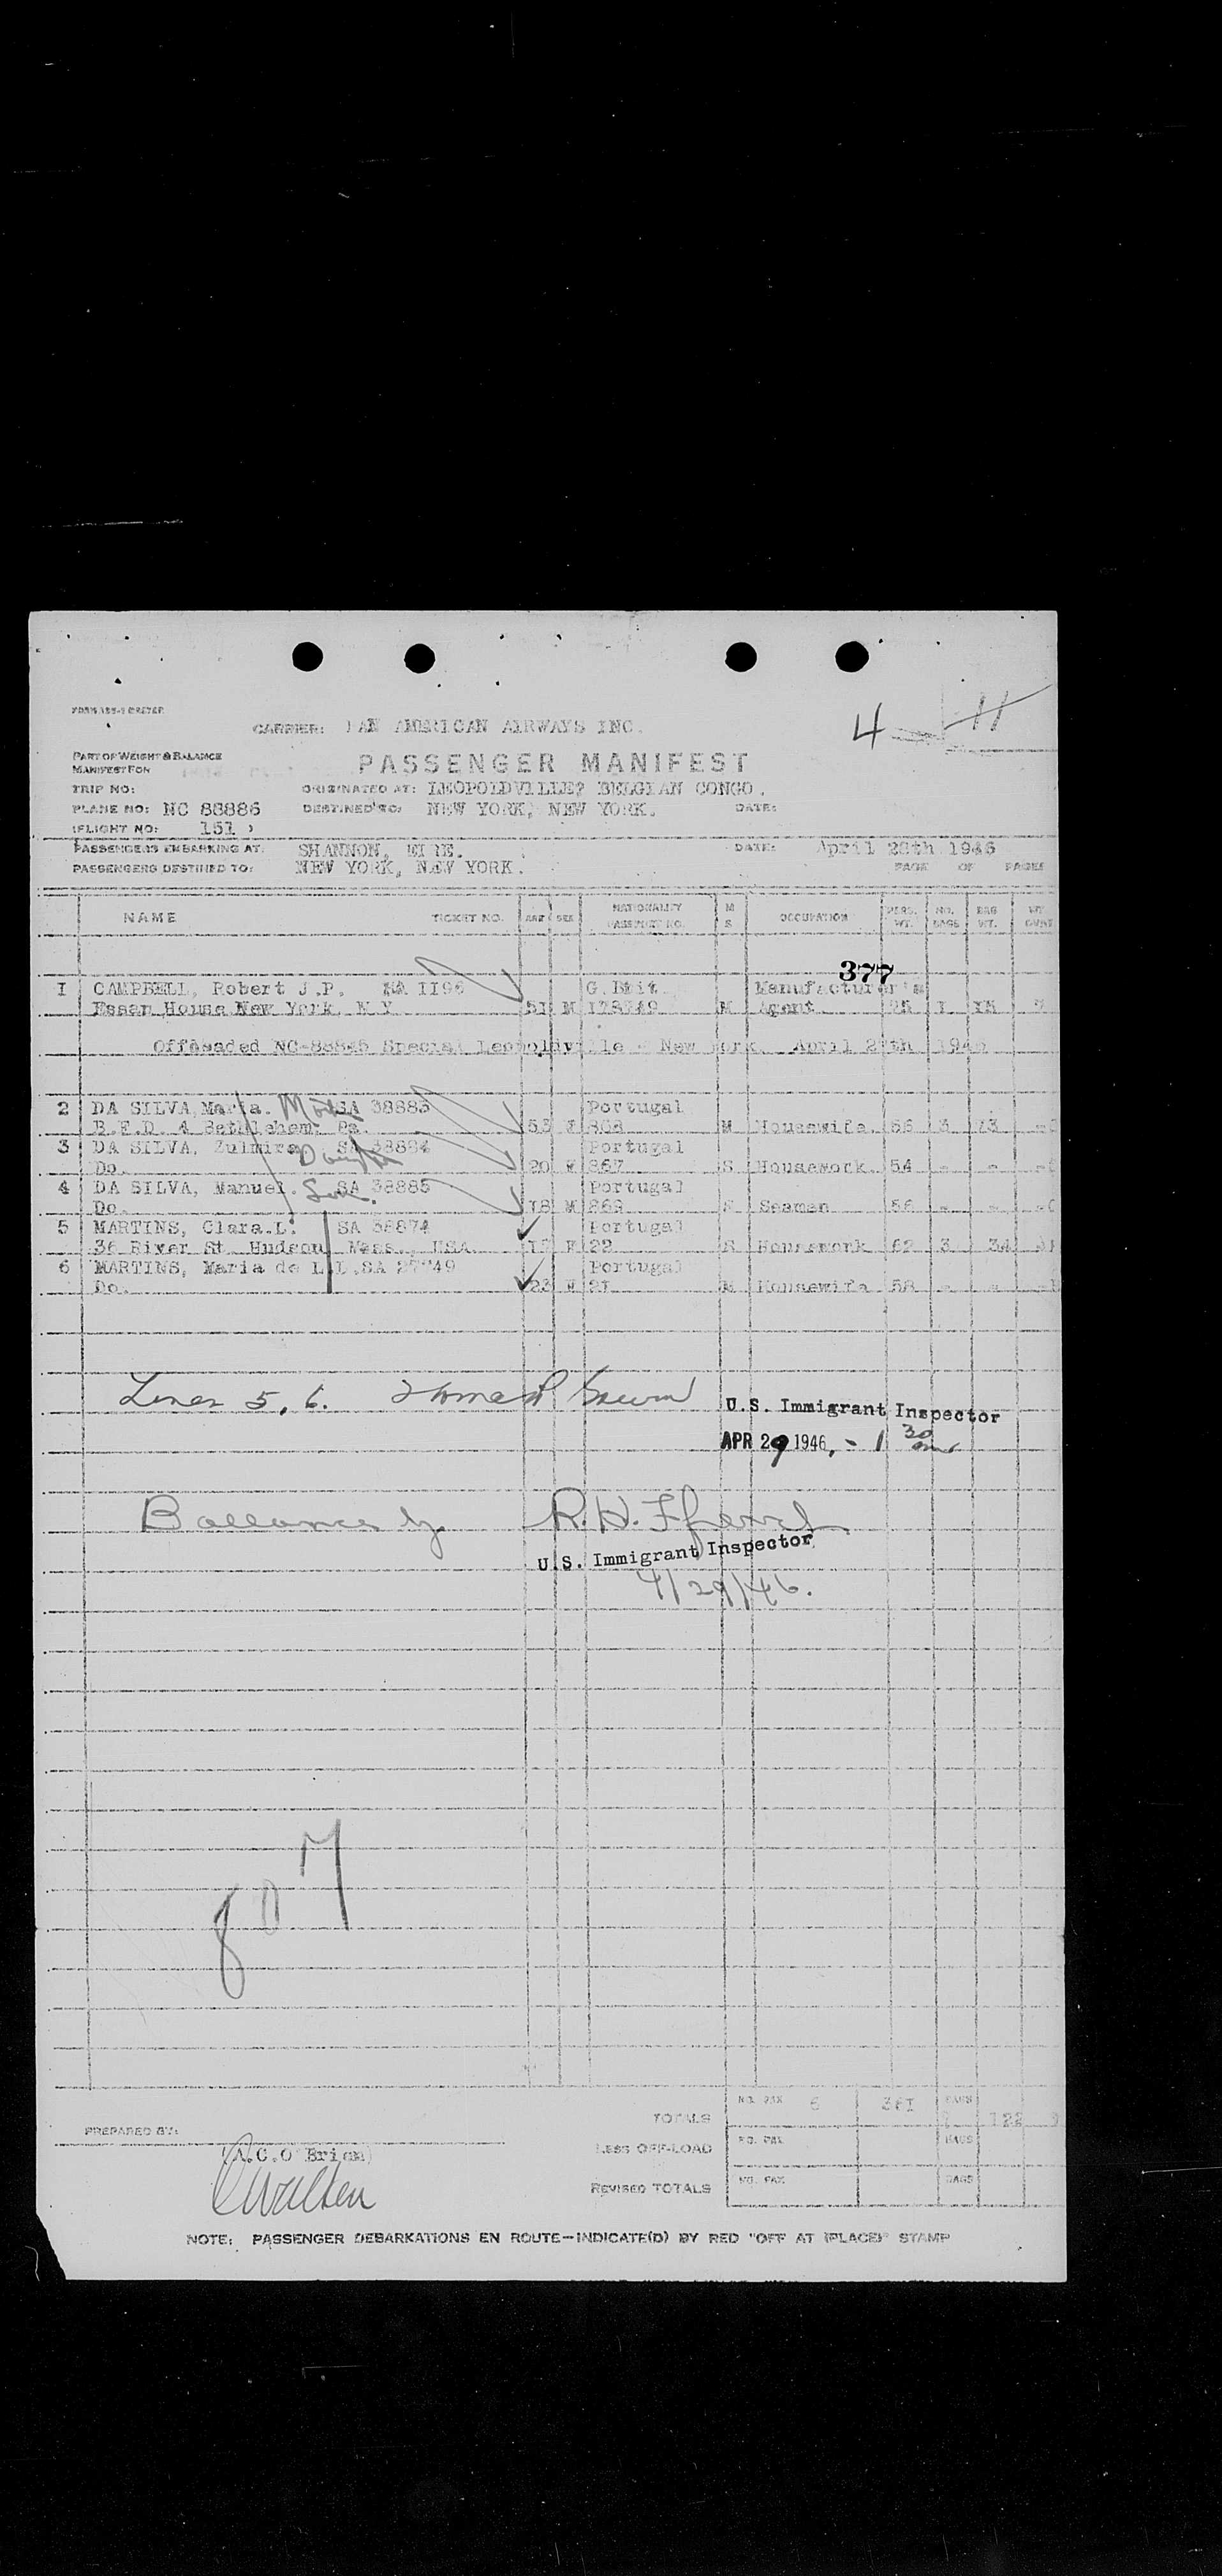 4 11
CARRIER: PAN AMERICAN AIRWAYS INC.
PART OF WEIGHT & BALANCE
MANIFEST FOR
PASSENGER MANIFEST
TRIP NO: ORIGINATED AT: LEOPOLDVILLE? BELGIAN CONGO.
PLANE NO: NC 88886 DESTINED TO: NEW YORK, NEW YORK. DATE:
(FLIGHT NO: 151 )
PASSENGERS EMBARKING AT: SHANNON, EIRE. DATE: April 28th 1946
PASSENGERS DESTINED TO: NEW YORK, NEW YORK. PAGE OF PAGES
NAME TICKET NO. AGE SEX NATIONALITY PASSPORT NO. M S OCCUPATION PERS. WT. NO. BAGS BAG WT.
377
1 CAMPBELL, Robert J.P. 1196 G. Brit. Manufacturer's
Essan House New York, N Y 51 M M Agent. 1
Offloaded NC-88845 Special Leopoldville - New York April 1946
2 DA SILVA Maria. SA 38883 Portugal
R.F.D. 4 Bethlehem, Pa. 53 F M Housewife. 66 3
3 DA SILVA, Zulmira Daught SA 38884 Portugal
Do. 20 F 867 S Housework. 54 - -
4 DA SILVA, Manuel. Son. SA 38885 Portugal
Do. 18 M S Seaman 56 - -
5 MARTINS, Clara.L. SA 38874 Portugal
36 River St. Hudson, Mass., USA F 22 S Housework 62 3 34
6 MARTINS, Maria de L.L. SA Portugal
Do. 23 F 21 M Housewife 58 - -
Lines 5, 6.
U.S. Immigrant Inspector
APR 29 1946, - 1 30
Ballance by R.H.
U.S. Immigrant Inspector
4/29/46.
807
TOTALS NO. PAX 6 361 BAGS 122
PREPARED BY:
(A.C.O'Brien)
LESS OFF-LOAD NO. PAX BAGS
REVISED TOTALS NO. PAX BAGS
NOTE: PASSENGER DEBARKATIONS EN ROUTE—INDICATE(D) BY RED "OFF AT (PLACE)" STAMP